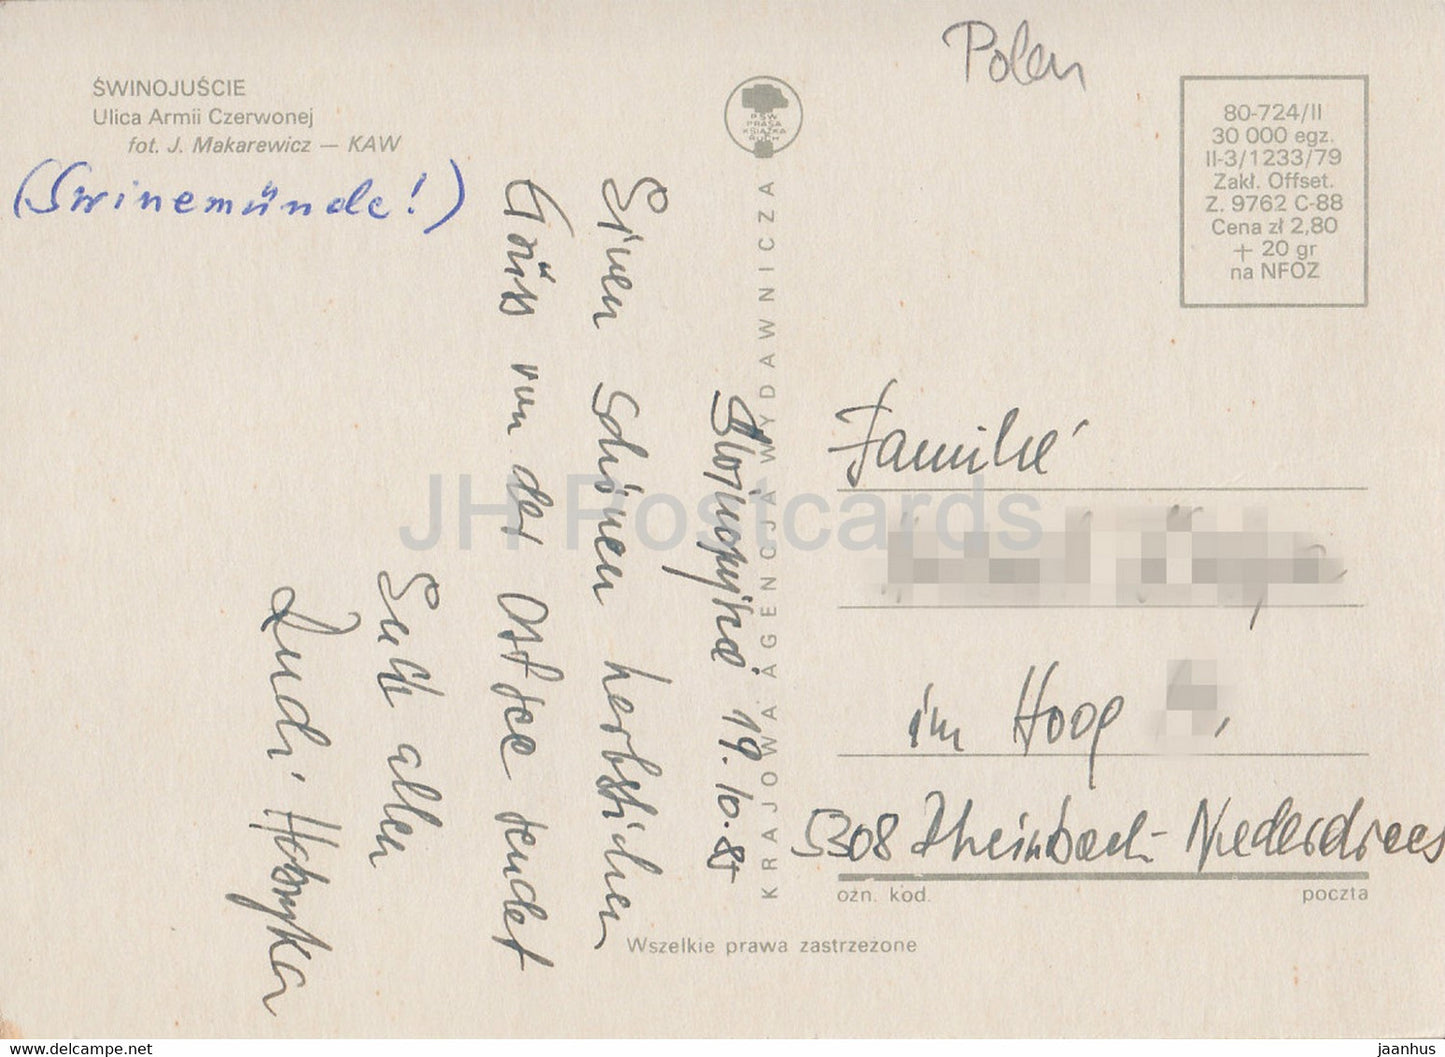 Polen
ŚWINOJUŚCIE
Ulica Armii Czerwonej
fot. J. Makarewicz — KAW
(Swinemünde!)
PSW
PRASA
KSIĄŻKA
RUCH
KRAJOWA AGENCJA WYDAWNICZA
80-724/II
30 000 egz.
II-3/1233/79
Zakł. Offset.
Z. 9762 C-88
Cena zł 2,80
+ 20 gr
na NFOZ
19. 10. 85
Einen schönen herbstlichen
Gruss von der Ostsee sendet
Euch allen
Rudi
Familie
im Hoog
5308 Rheinbach-Niederdrees
ozn. kod.
poczta
Wszelkie prawa zastrzeżone
JH Postcards
www.delcampe.net
jaanhus